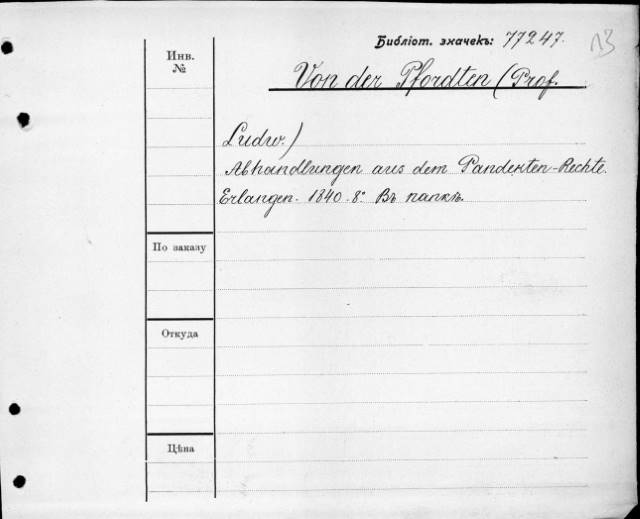 Библіот. значекъ: 77247.
13
Инв.
№
Von der Pfordten (Prof.
Ludw.)
Abhandlungen aus dem Pandekten-Rechte.
Erlangen. 1840. 8° Въ папкѣ.
По заказу
Откуда
Цѣна